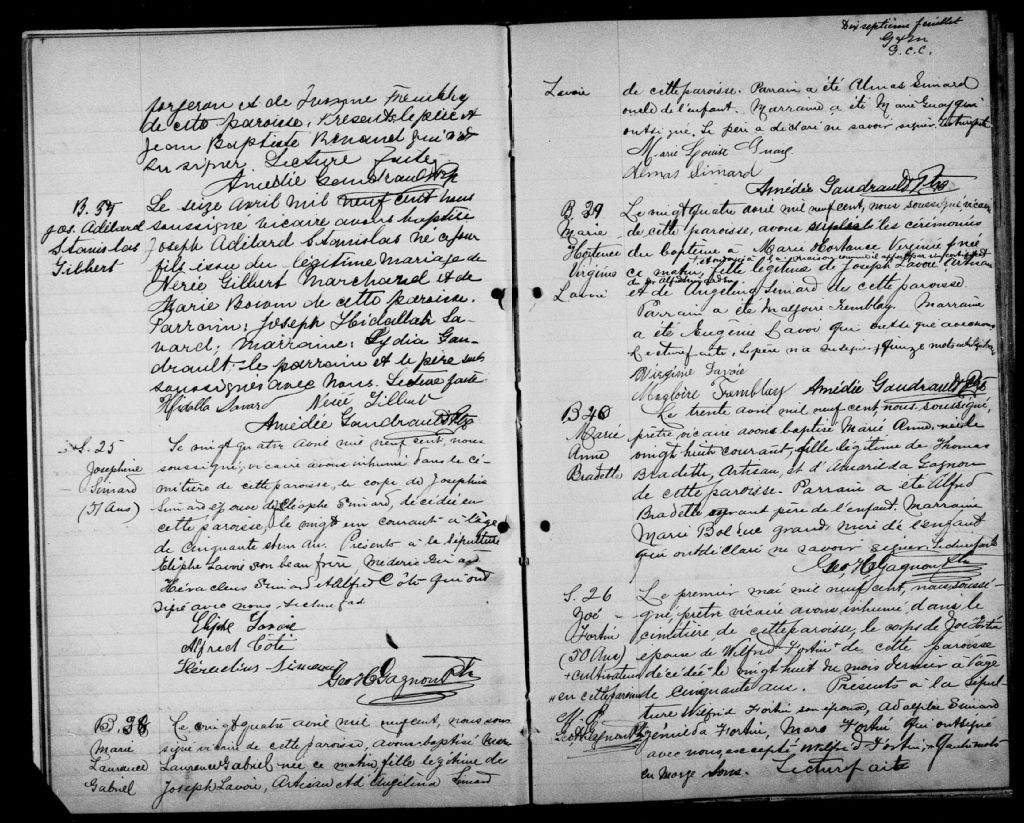 forgeron et de Tremblay
de cette paroisse. Présents le père et
Jean Baptiste Renaud qui ont
su signer Lecture faite
Amédée Gaudrault Ptr
B. 37
Jos. Adélard
Stanislas
Gilbert
Le seize avril mil neuf cent nous
soussigné vicaire avons baptisé
Joseph Adélard Stanislas né ce jour
fils issu du légitime mariage de
Nérée Gilbert Marchand et de
Marie de cette paroisse.
Parrain: Joseph Hidallah Sa-
vard; Marraine: Lydia Gau-
drault. le parrain et le père sont
soussignés avec Nous. Lecture faite
Hidalla Savard Nérée Gilbert
Amédée Gaudrault Ptr
S. 25
Josephine
Simard
(51 Ans)
Le vingt quatre avril mil neuf cent, nous
soussigné, vicaire avons inhumé dans le ci-
metière de cette paroisse, le corps de Josephine
Simard épouse de Cléophe Simard, décédée en
cette paroisse, le vingt un courant à l'âge
de cinquante et un an. Présents à la sépulture
Eliphe Lavoie son beau frère, Médéric
Héraclius Simard et Alfred Côté qui ont
signé avec nous. Lecture faite
Eliphe Lavoie
Alfred Côté
Héraclius Simard
Geo H Gagnon Ptr
B. 38
Marie
Laurence
Gabriel
Le vingt quatre avril mil neuf cent, nous sous
signé vicaire de cette paroisse, avons baptisé Marie
Laurence Gabriel née ce matin, fille légitime de
Joseph Lavoie, Artisan et d'Angelina Simard
Dix septième feuillet
G. C. C.
Lavoie
de cette paroisse. Parrain a été Almas Simard
oncle de l'enfant. Marraine a été Marie Guay qui
ont signé. Le père a déclaré ne savoir signer. Lecture faite
Marie Louise Guay
Almas Simard
Amédée Gaudrault Ptr
B 39
Marie
Hortence
Virginie
Lavoie
Le vingt quatre avril mil neuf cent, nous soussigné, vicaire
de cette paroisse, avons suppléé les cérémonies
du baptême à Marie Hortance Virginie née
ce matin, fille légitime de Joseph Lavoie Artisan
et de Angelina Simard de cette paroisse.
Parrain a été Magloire Tremblay. Marraine
a été Eugénie Lavoie qui ont signé avec nous
Lecture faite, le père n'a su signer, quinze mots
Virginie Lavoie
Magloire Tremblay Amédée Gaudrault Ptr
B 40
Marie
Anne
Bradette
Le trente avril mil neuf cent, nous soussigné,
prêtre vicaire avons baptisé Marie Anne, née le
vingt huit courant, fille légitime de Thomas
Bradette, Artisan, et d'Amarilda Gagnon
de cette paroisse. Parrain a été Alfred
Bradette grand père de l'enfant. Marraine
Marie Bolduc grand mère de l'enfant
qui ont déclaré ne savoir signer. Lecture faite
Geo. H Gagnon Ptr
S. 26
Zoé
Fortin
(50 Ans)
+ cultivateur
" en cette paroisse
Geo H Gagnon Ptr
Le premier mai mil neuf cent, nous soussi-
gné, prêtre vicaire avons inhumé dans le
cimetière de cette paroisse, le corps de Zoé Fortin
épouse de Wilfrid Fortin + de cette paroisse
décédée " le vingt huit du mois dernier à l'âge
de cinquante ans. Présents à la sépul-
ture Wilfrid Fortin son époux, Adolphe Simard
Fortin, Marc Fortin qui ont signé
avec nous, excepté Wilfrid Fortin, + Quatre mots
en marge bons. Lecture faite